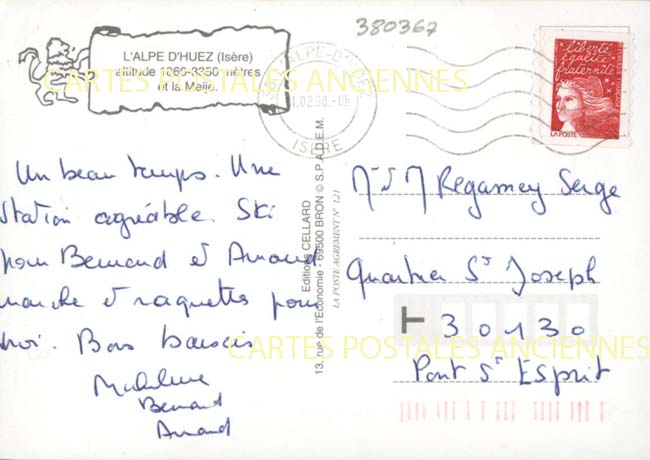 380367
L'ALPE D'HUEZ (Isère)
altitude 1860-3350 mètres
et la Meije.
CARTES POSTALES ANCIENNES
ALPE-D'HUEZ
.02.98.-
ISERE
liberté
égalité
fraternité
LA POSTE
Un beau temps. Une
station agréable. Ski
pour Bernard et Arnaud
marche et raquettes pour
moi. Bons baisers
Madeleine
Bernard
Arnaud
Editions CELLARD
13, rue de l'Economie - 69500 BRON © S.P.A.D.E.M.
LA POSTE AGREMENT N° 121
Mr & M Regamey Serge
Quartier St Joseph
30130
Pont St Esprit
CARTES POSTALES ANCIENNES